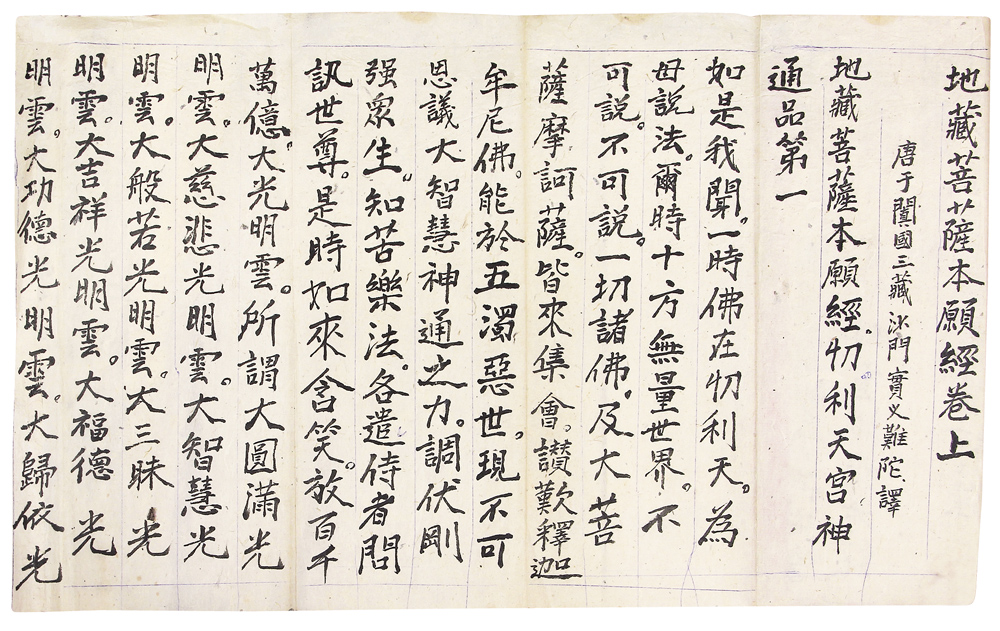 地藏菩薩本願經卷上
唐于闐國三藏沙門實义難陀譯
地藏菩薩本願經。忉利天宮神
通品第一
如是我聞。一時佛在忉利天。為
母說法。爾時十方無量世界。不
可說。不可說。一切諸佛。及大菩
薩摩訶薩。皆來集會。讚歎釋迦
牟尼佛。能於五濁惡世。現不可
思議大智慧神通之力。調伏剛
强眾生。知苦樂法。各遣侍者問
訊世尊。是時如來含笑。放百千
萬億。大光明雲。所謂大圓滿光
明雲。大慈悲光明雲。大智慧光
明雲。大般若光明雲。大三昧光
明雲。大吉祥光明雲。大福德光
明雲。大功德光明雲。大歸依光